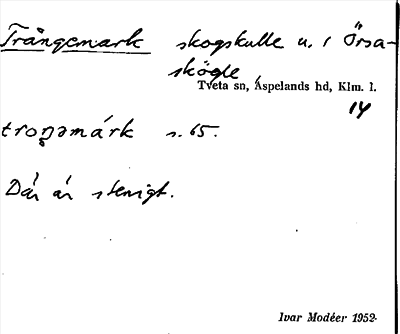 Trångemark skogskulle u. i Örsa-
skögle
Tveta sn, Aspelands hd, Klm. l.
14
troŋəmárk s. 65.
Där är stenigt.
Ivar Modéer 1952.